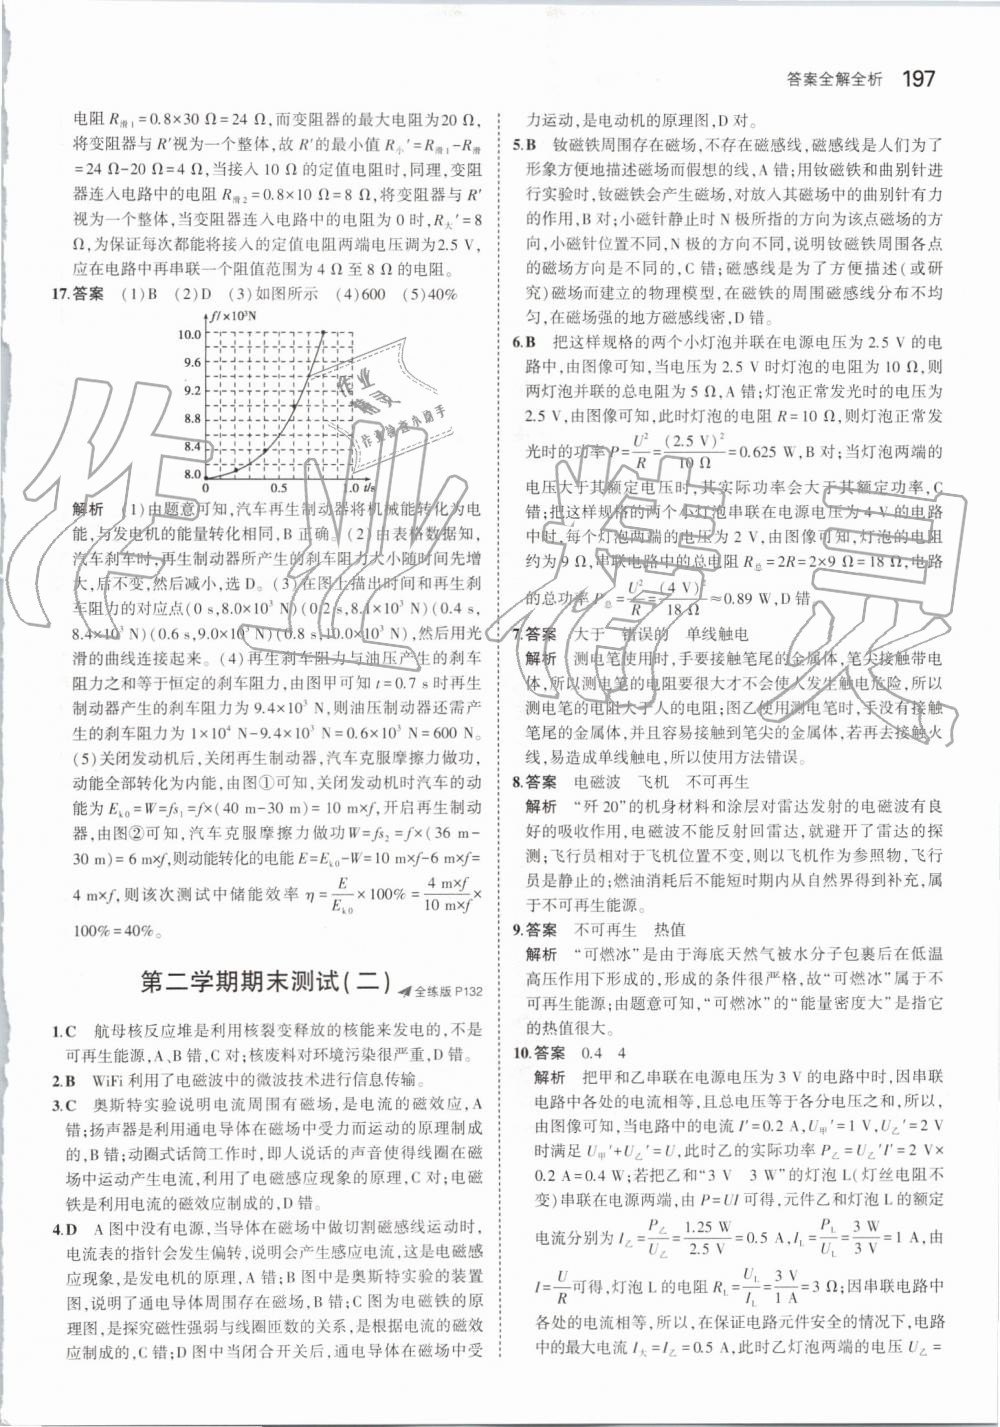 答案全解全析 197
电阻 R滑1=0.8×30 Ω=24 Ω,而变阻器的最大电阻为20 Ω,
将变阻器与 R′视为一个整体,故 R′的最小值 R小′=R滑1-R滑
=24 Ω-20 Ω=4 Ω,当接入 10 Ω 的定值电阻时,同理,变阻
器连入电路中的电阻 R滑2=0.8×10 Ω=8 Ω,将变阻器与 R′
视为一个整体,当变阻器连入电路中的电阻为 0 时,R大′=8
Ω,为保证每次都能将接入的定值电阻两端电压调为2.5 V,
应在电路中再串联一个阻值范围为 4 Ω 至 8 Ω 的电阻。
17.答案 (1)B (2)D (3)如图所示 (4)600 (5)40%
f/×10³N
10.0
9.6
9.2
8.8
8.4
8.0
0 0.5 1.0 t/s
解析 (1)由题意可知,汽车再生制动器将机械能转化为电
能,与发电机的能量转化相同,B 正确。(2)由表格数据知,
汽车刹车时,再生制动器所产生的刹车阻力大小随时间先增
大,后不变,然后减小,选 D。(3)在图上描出时间和再生刹
车阻力的对应点(0 s,8.0×10³ N)(0.2 s,8.1×10³ N)(0.4 s,
8.4×10³ N)(0.6 s,9.0×10³ N)(0.8 s,10.0×10³ N),然后用光
滑的曲线连接起来。(4)再生刹车阻力与油压产生的刹车
阻力之和等于恒定的刹车阻力,由图甲可知 t=0.7 s 时再生
制动器产生的刹车阻力为 9.4×10³ N,则油压制动器还需产
生的刹车阻力为 1×10⁴ N-9.4×10³ N=0.6×10³ N=600 N。
(5)关闭发动机后,关闭再生制动器,汽车克服摩擦力做功,
动能全部转化为内能,由图①可知,关闭发动机时汽车的动
能为 Ek0=W=fs1=f×(40 m-30 m)=10 m×f,开启再生制动
器,由图②可知,汽车克服摩擦力做功W=fs2=f×(36 m-
30 m)=6 m×f,则动能转化的电能 E=Ek0-W=10 m×f-6 m×f=
4 m×f,则该次测试中储能效率 η=E/Ek0×100%=4 m×f/10 m×f×
100%=40%。
第二学期期末测试(二) 全练版 P132
1.C 航母核反应堆是利用核裂变释放的核能来发电的,不是
可再生能源,A、B 错,C 对;核废料对环境污染很严重,D 错。
2.B WiFi 利用了电磁波中的微波技术进行信息传输。
3.C 奥斯特实验说明电流周围有磁场,是电流的磁效应,A
错;扬声器是利用通电导体在磁场中受力而运动的原理制成
的,B 错;动圈式话筒工作时,即人说话的声音使得线圈在磁
场中运动产生电流,利用了电磁感应现象的原理,C 对;电磁
铁是利用电流的磁效应制成的,D 错。
4.D A 图中没有电源,当导体在磁场中做切割磁感线运动时,
电流表的指针会发生偏转,说明会产生感应电流,这是电磁感
应现象,是发电机的原理,A 错;B 图是奥斯特实验的装置
图,说明了通电导体周围存在磁场,B 错;C 图为电磁铁的原
理图,是探究磁性强弱与线圈匝数的关系,是根据电流的磁效
应制成的,C 错;D 图中当闭合开关后,通电导体在磁场中受
力运动,是电动机的原理图,D 对。
5.B 钕磁铁周围存在磁场,不存在磁感线,磁感线是人们为了
形象方便地描述磁场而假想的线,A 错;用钕磁铁和曲别针进
行实验时,钕磁铁会产生磁场,对放入其磁场中的曲别针有力
的作用,B 对;小磁针静止时 N 极所指的方向为该点磁场的方
向,小磁针位置不同,N 极的方向不同,说明钕磁铁周围各点
的磁场方向是不同的,C 错;磁感线是为了方便描述(或研
究)磁场而建立的物理模型,在磁铁的周围磁感线分布不均
匀,在磁场强的地方磁感线密,D 错。
6.B 把这样规格的两个小灯泡并联在电源电压为 2.5 V 的电
路中,由图像可知,当电压为 2.5 V 时灯泡的电阻为 10 Ω,则
两灯泡并联的总电阻为 5 Ω,A 错;灯泡正常发光时的电压为
2.5 V,由图像可知,此时灯泡的电阻 R=10 Ω,则灯泡正常发
光时的功率 P=U²/R=(2.5 V)²/10 Ω=0.625 W,B 对;当灯泡两端的
电压大于其额定电压时,其实际功率会大于其额定功率,C
错;把这样规格的两个小灯泡串联在电源电压为 4 V 的电路
中时,每个灯泡两端的电压为 2 V,由图像可知,灯泡的电阻
约为 9 Ω,串联电路中的总电阻 R总=2R=2×9 Ω=18 Ω,电路
的总功率 P总=U²/R=(4 V)²/18 Ω≈0.89 W,D 错。
7.答案 大于 错误的 单线触电
解析 测电笔使用时,手要接触笔尾的金属体,笔尖接触带电
体,所以测电笔的电阻要很大才不会使人发生触电危险,所以
测电笔的电阻大于人的电阻;图乙使用测电笔时,手没有接触
笔尾的金属体,并且容易接触到笔尖的金属体,若再去接触火
线,易造成单线触电,所以使用方法错误。
8.答案 电磁波 飞机 不可再生
解析 “歼 20”的机身材料和涂层对雷达发射的电磁波有良
好的吸收作用,电磁波不能反射回雷达,就避开了雷达的探
测;飞行员相对于飞机位置不变,则以飞机作为参照物,飞行
员是静止的;燃油消耗后不能短时期内从自然界得到补充,属
于不可再生能源。
9.答案 不可再生 热值
解析 “可燃冰”是由于海底天然气被水分子包裹后在低温
高压作用下形成的,形成的条件很严格,故“可燃冰”属于不
可再生能源;由题意可知,“可燃冰”的“能量密度大”是指它
的热值很大。
10.答案 0.4 4
解析 把甲和乙串联在电源电压为 3 V 的电路中时,因串联
电路中各处的电流相等,且总电压等于各分电压之和,所以,
由图像可知,当电路中的电流 I′=0.2 A,U甲′=1 V,U乙′=2 V
时满足 U甲′+U乙′=U,此时乙的实际功率 P乙=U乙′I′=2 V×
0.2 A=0.4 W;若把乙和“3 V 3 W”的灯泡 L(灯丝电阻不
变)串联在电源两端,由 P=UI 可得,元件乙和灯泡 L 的额定
电流分别为 I乙=P乙/U乙=1.25 W/2.5 V=0.5 A,IL=PL/UL=3 W/3 V=1 A,由
I=U/R可得,灯泡 L 的电阻 RL=UL/IL=3 V/1 A=3 Ω;因串联电路中
各处的电流相等,所以,在保证电路元件安全的情况下,电路
中的最大电流 I大=I乙=0.5 A,此时乙灯泡两端的电压 U乙=
作业精灵
作业精灵
作业检查小助手